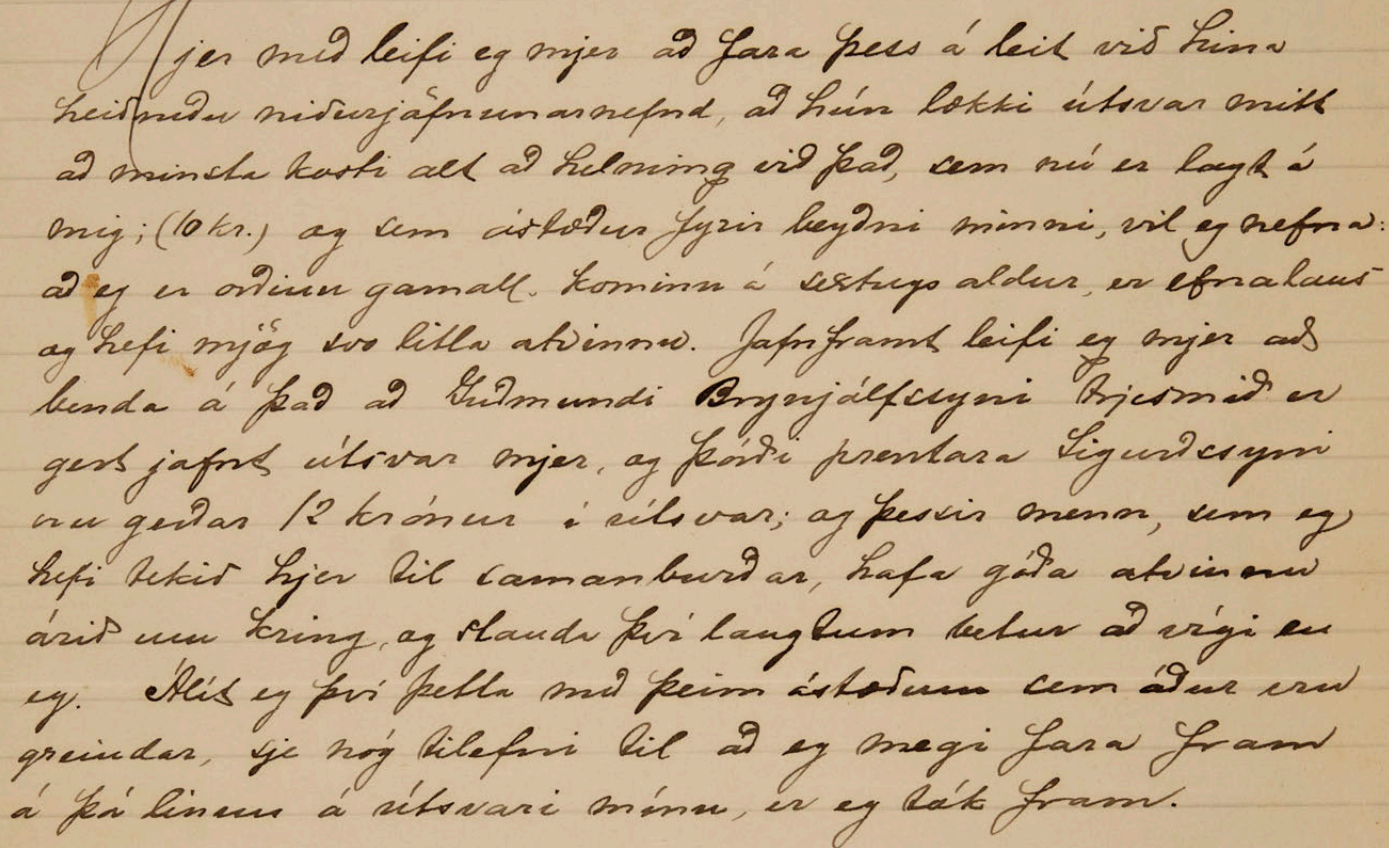 Hjer með leifi eg mjer að fara þess á leit við hina
heiðruðu niðurjöfnunarnefnd, að hún lækki útsvar mitt
að minsta kosti alt að helning við það, sem nú er lagt á
mig; (10 kr.) og sem ástæður fyrir beyðni minni, vil eg nefna:
að eg er orðinn gamall. kominn á sextugs aldur, er efnalaus
og hefi mjög svo litla atvinnu. Jafnframt leifi eg mjer að
benda á það að Guðmundi Brynjálfssyni trjesmið er
gert jafnt útsvar mjer, og Þórði prentara Sigurðssyni
eru gerðar 12 krónur í útsvar; og þessir menn, sem eg
hefi tekið hjer til samanburðar, hafa góða atvinnu
árið um kring, og standa því langtum betur að vígi en
eg. Álít eg því þetta með þeim ástæðum sem áður eru
greindar, sje nóg tilefni til að eg megi fara fram
á þá linun á útsvari mínu, er eg tók fram.